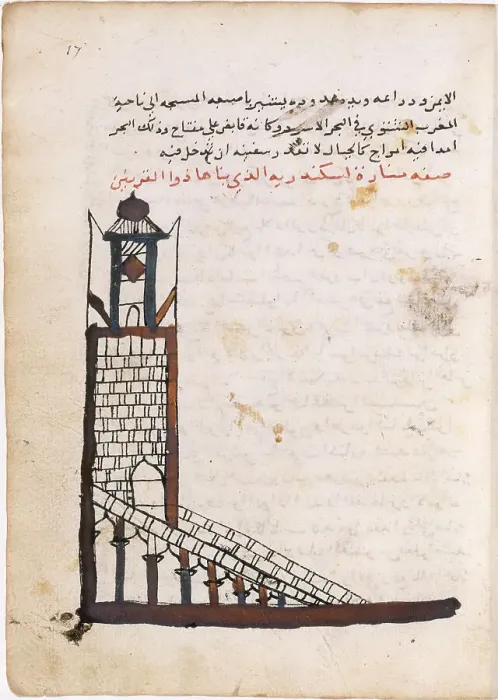 17
الايمن ودراعه ويده يشير باصبعه المسبحه الى ناحية
المغرب في البحر الاسود وكانه قابض على مفتاح وذلك البحر
فيه امواج كالجبال لا تقدر سفينه ان تدخل فيه
صفه منارة لسكندريه الذي بناها ذوا القرنين